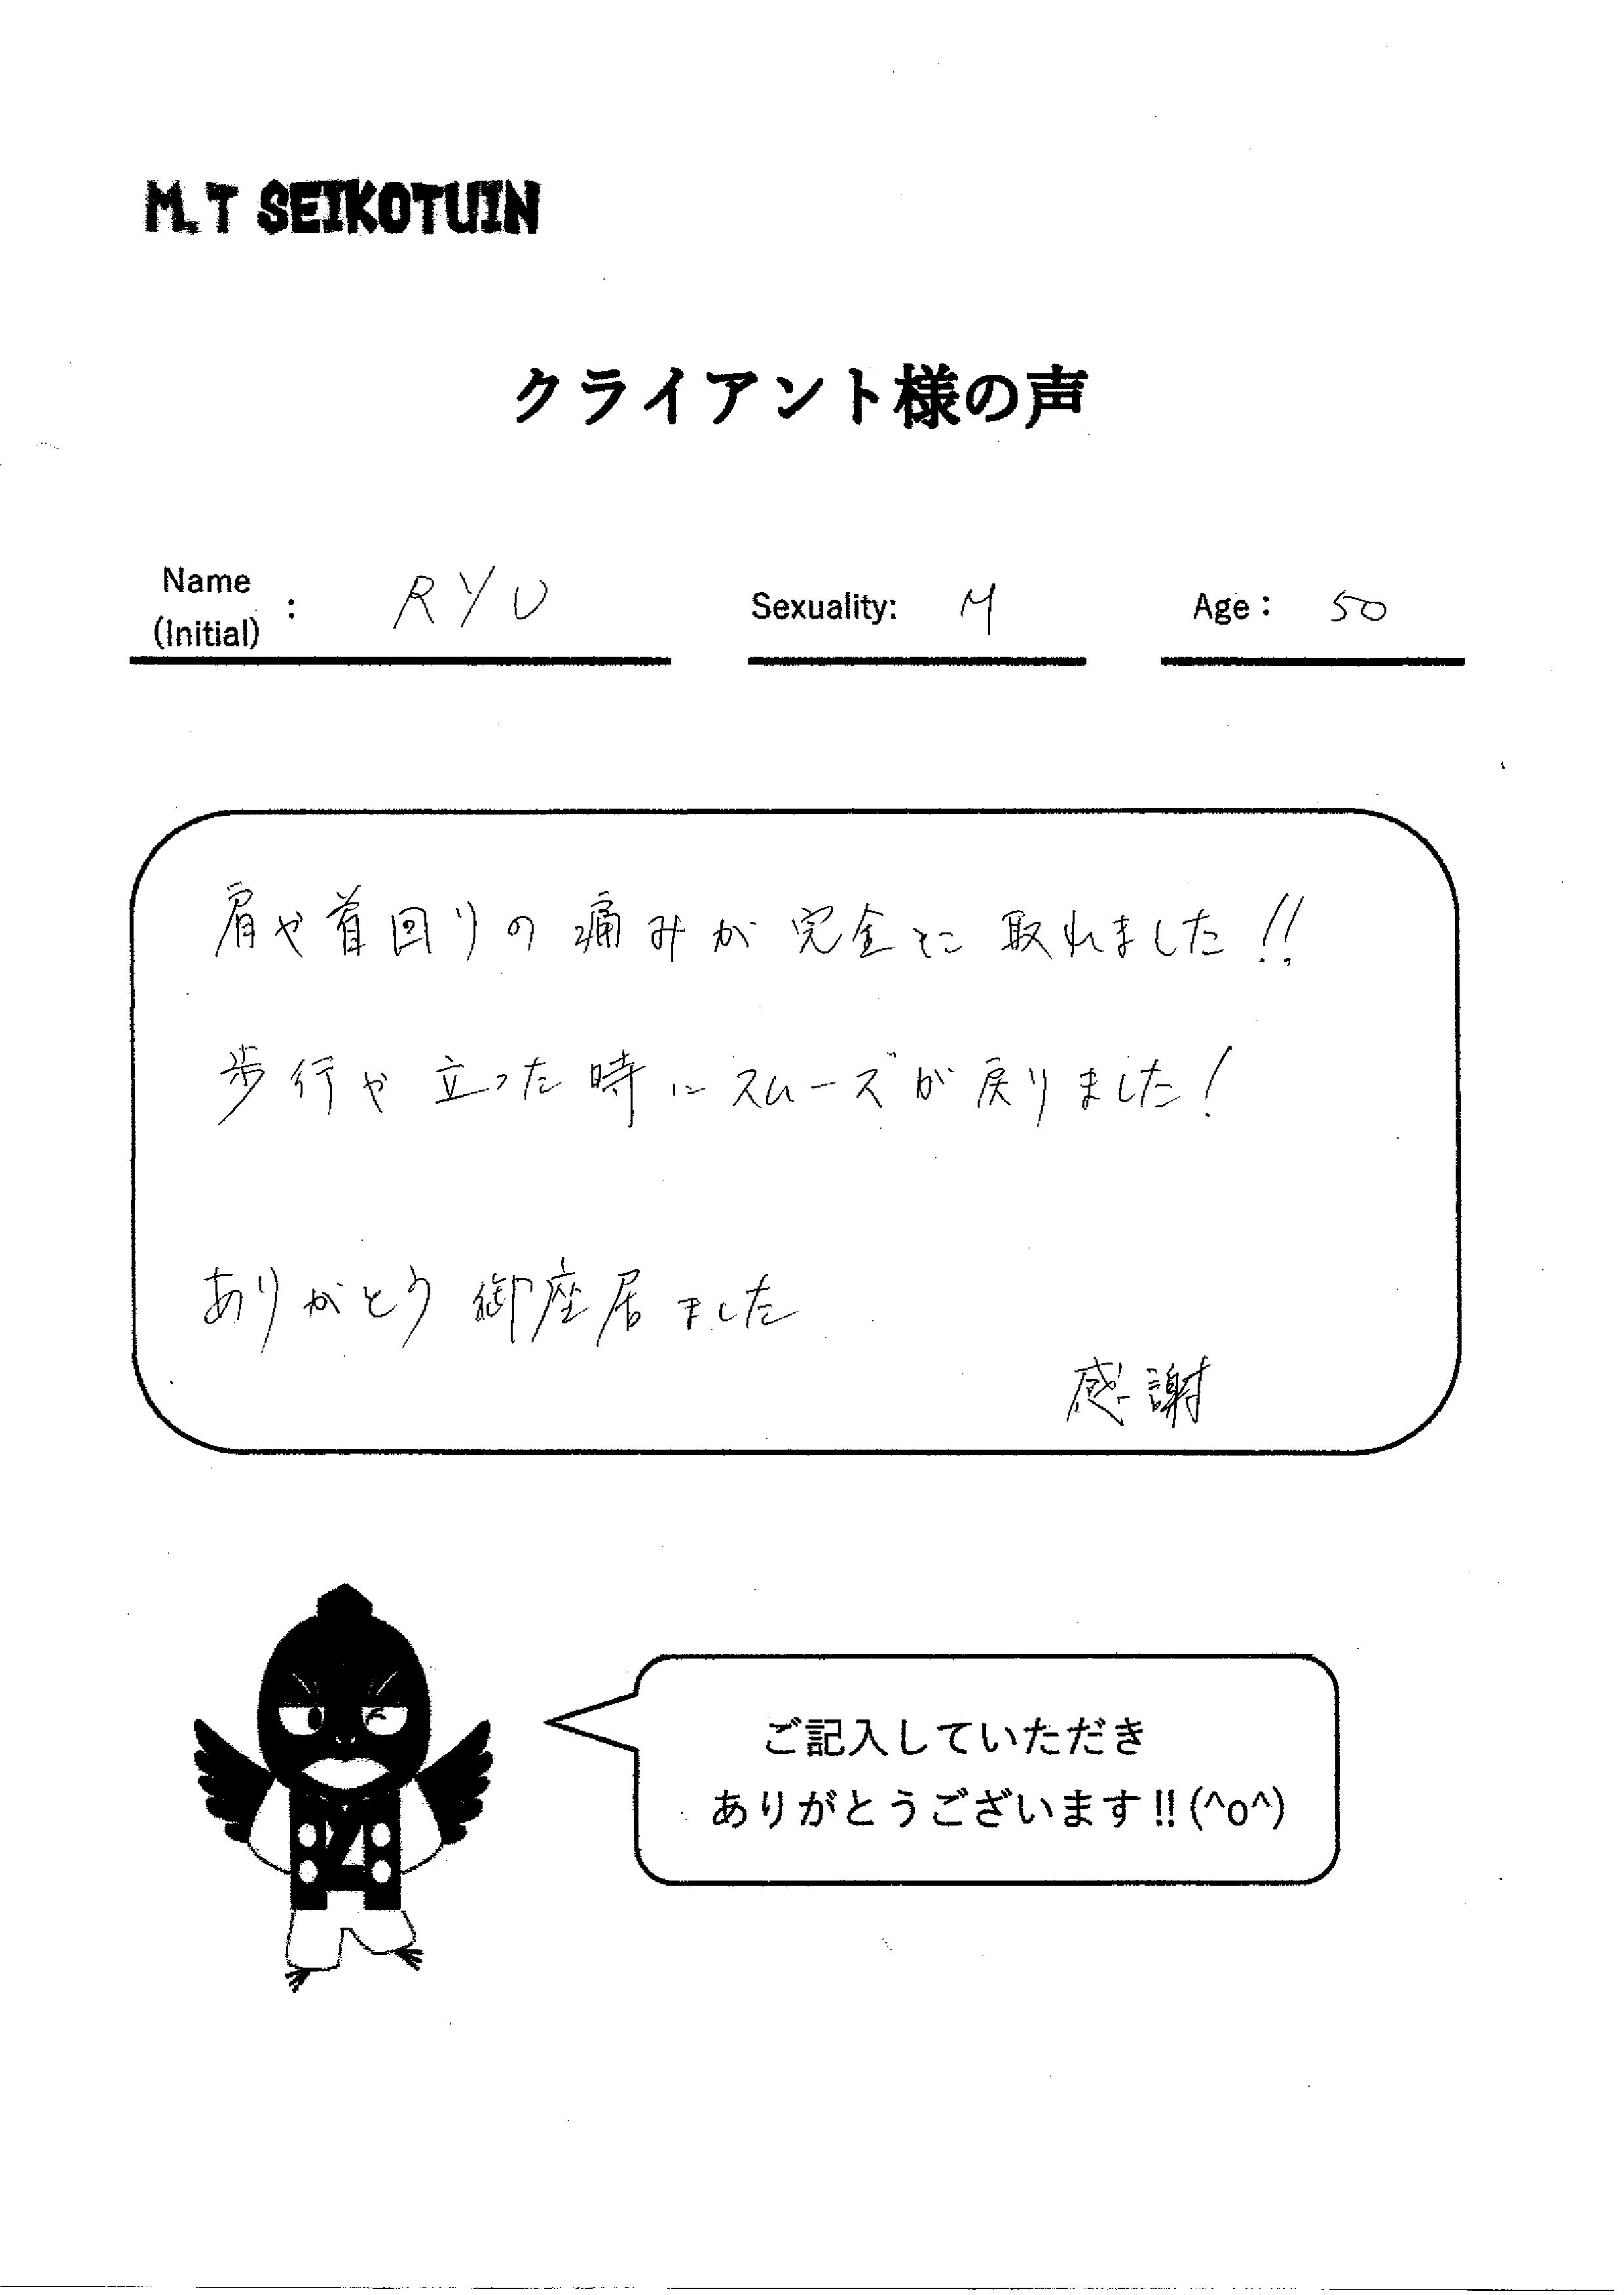 M.T SEIKOTUIN
クライアント様の声
Name
(Initial) : RYU Sexuality: M Age： 50
肩や首回りの痛みが完全に取れました!!
歩行や立った時にスムーズが戻りました!
ありがとう御座居ました
感謝
ご記入していただき
ありがとうございます!!(^o^)